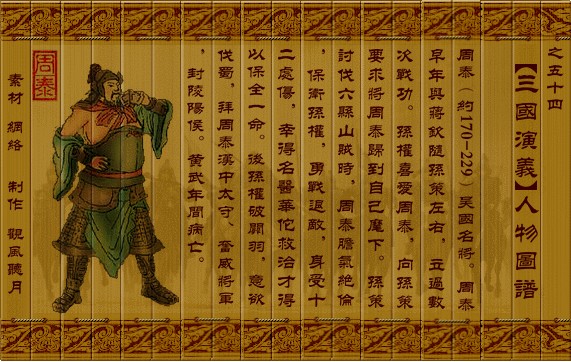 之五十四
【三國演義】人物圖譜
周泰（約170-229）吳國名將。周泰
早年與蔣欽隨孫策左右，立過數
次戰功。孫權喜愛周泰，向孫策
要求將周泰歸到自己麾下。孫策
討伐六縣山賊時，周泰膽氣絶倫
，保衛孫權，勇戰退敵，身受十
二處傷，幸得名醫華佗救治才得
以保全一命。後孫權破關羽，意欲
伐蜀，拜周泰漢中太守、奮威將軍
，封陵陽侯。黃武年間病亡。
周泰
素材 網絡 制作 觀風聽月